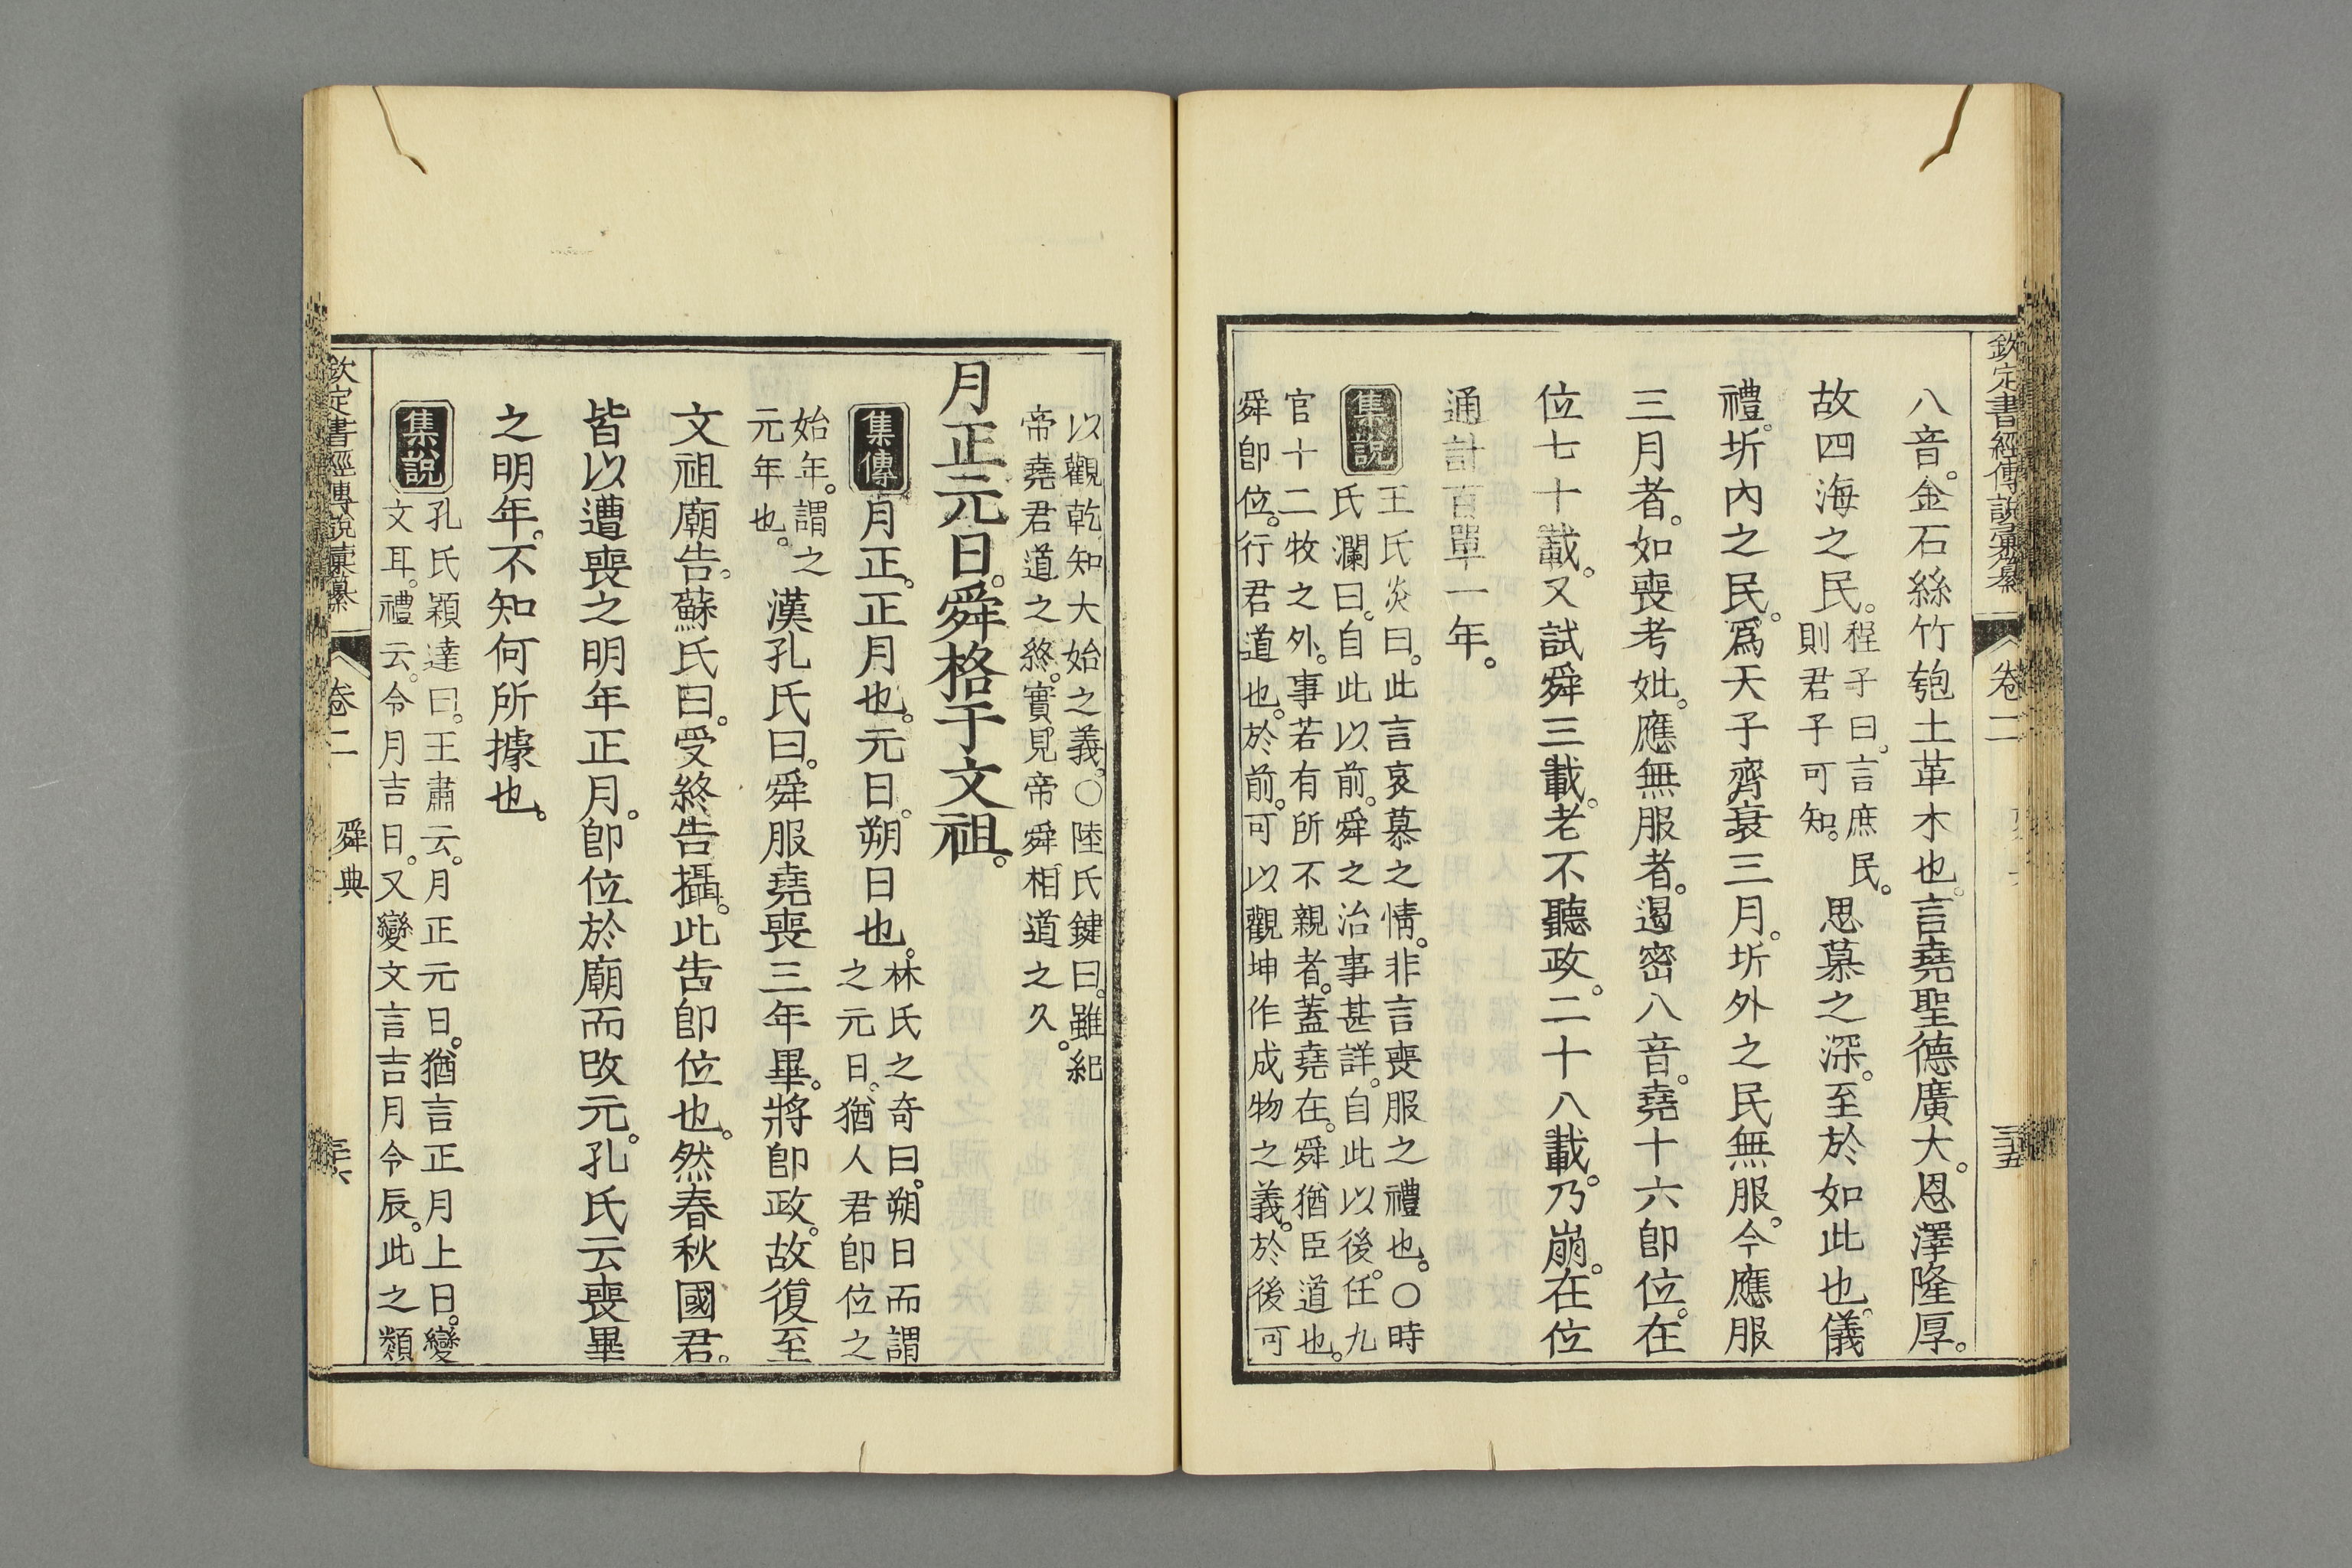 欽定書經傳說彙纂 卷二 三十五
八音。金石絲竹匏土革木也。言堯聖德廣大。恩澤隆厚。
故四海之民。程子曰。言庶民。
則君子可知。思慕之深。至於如此也。儀
禮。圻內之民。爲天子齊衰三月。圻外之民無服。今應服
三月者。如喪考妣。應無服者。遏密八音。堯十六卽位。在
位七十載。又試舜三載。老不聽政。二十八載。乃崩。在位
通計百單一年。
集說
王氏炎曰。此言哀慕之情。非言喪服之禮也。〇時
氏瀾曰。自此以前。舜之治事甚詳。自此以後。任九
官十二牧之外。事若有所不親者。蓋堯在。舜猶臣道也。
舜卽位。行君道也。於前。可以觀坤作成物之義。於後可
以觀乾知大始之義。〇陸氏鍵曰。雖紀
帝堯君道之終。實見帝舜相道之久。
月正元日。舜格于文祖。
集傳
月正。正月也。元日。朔日也。林氏之奇曰。朔日而謂
之元日。猶人君卽位之
始年。謂之
元年也。漢孔氏曰。舜服堯喪三年畢。將卽政。故復至
文祖廟告。蘇氏曰。受終告攝。此告卽位也。然春秋國君。
皆以遭喪之明年正月。卽位於廟而改元。孔氏云喪畢
之明年。不知何所據也。
集說
孔氏穎達曰。王肅云。月正元日。猶言正月上日。變
文耳。禮云。令月吉日。又變文言吉月令辰。此之類
欽定書經傳說彙纂 卷二 舜典 三十六